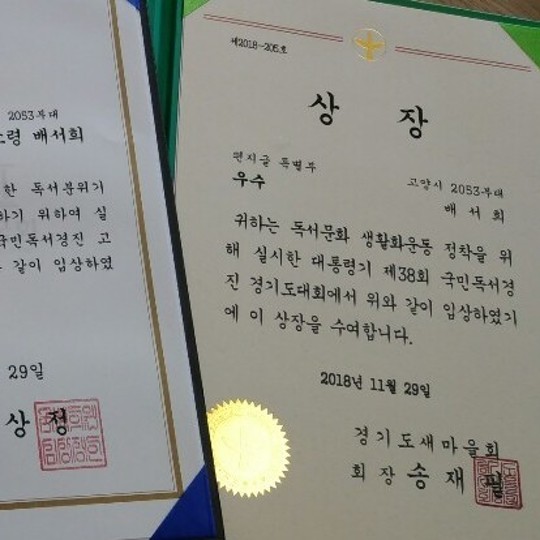 2053부대
소령 배서희
한 독서분위기
하기 위하여 실
국민독서경진 고
같이 입상하였
29일
상 정
제2018-205호
상 장
편지글 특별부
우수
고양시 2053부대
배 서 희
귀하는 독서문화 생활화운동 정착을 위
해 실시한 대통령기 제38회 국민독서경
진 경기도대회에서 위와 같이 입상하였기
에 이 상장을 수여합니다.
2018년 11월 29일
경기도새마을회
회 장 송 재 필